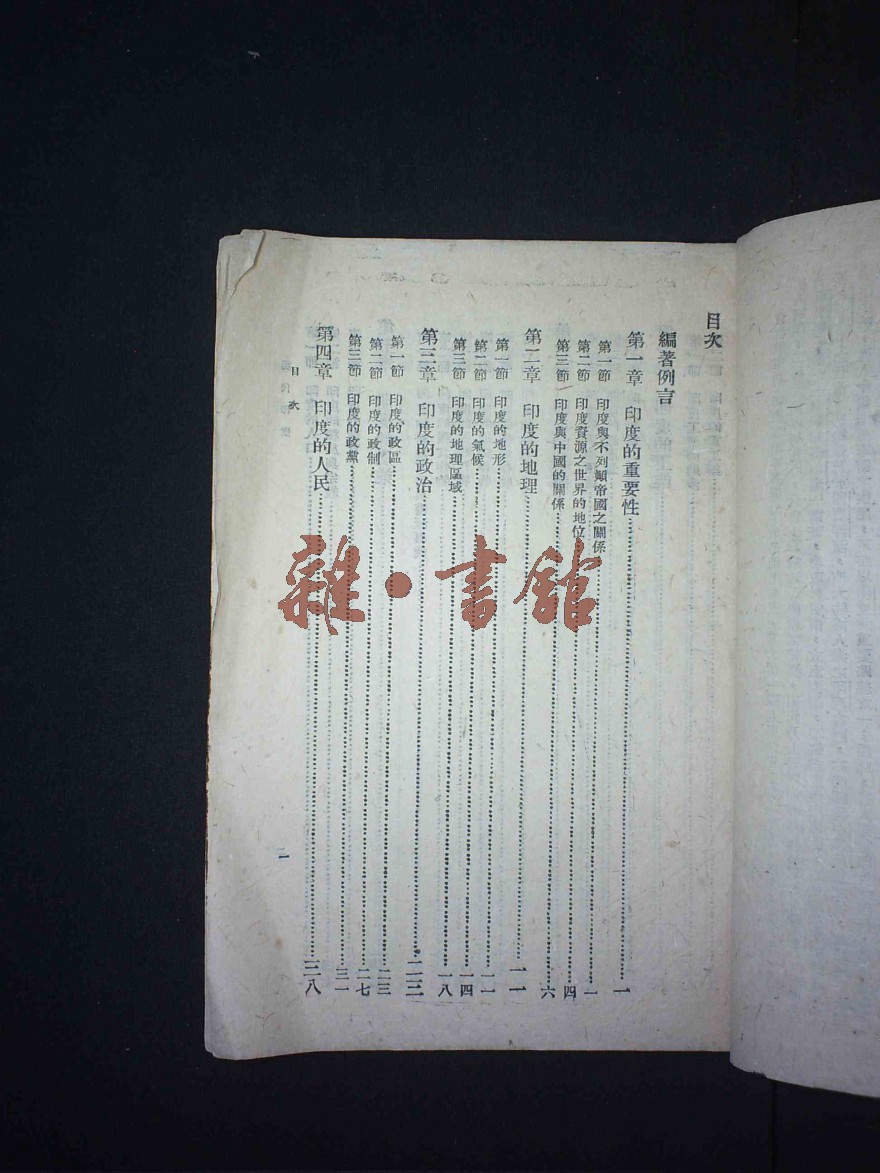 目次
編著例言
第一章 印度的重要性…………一
第一節 印度與不列顛帝國之關係…………一
第二節 印度資源之世界的地位…………四
第三節 印度與中國的關係…………六
第二章 印度的地理…………一一
第一節 印度的地形…………一一
第二節 印度的氣候…………一四
第三節 印度的地理區域…………一八
第三章 印度的政治…………二三
第一節 印度的政區…………二三
第二節 印度的政制…………二七
第三節 印度的政黨…………三一
第四章 印度的人民…………三八
目次
雜·書館